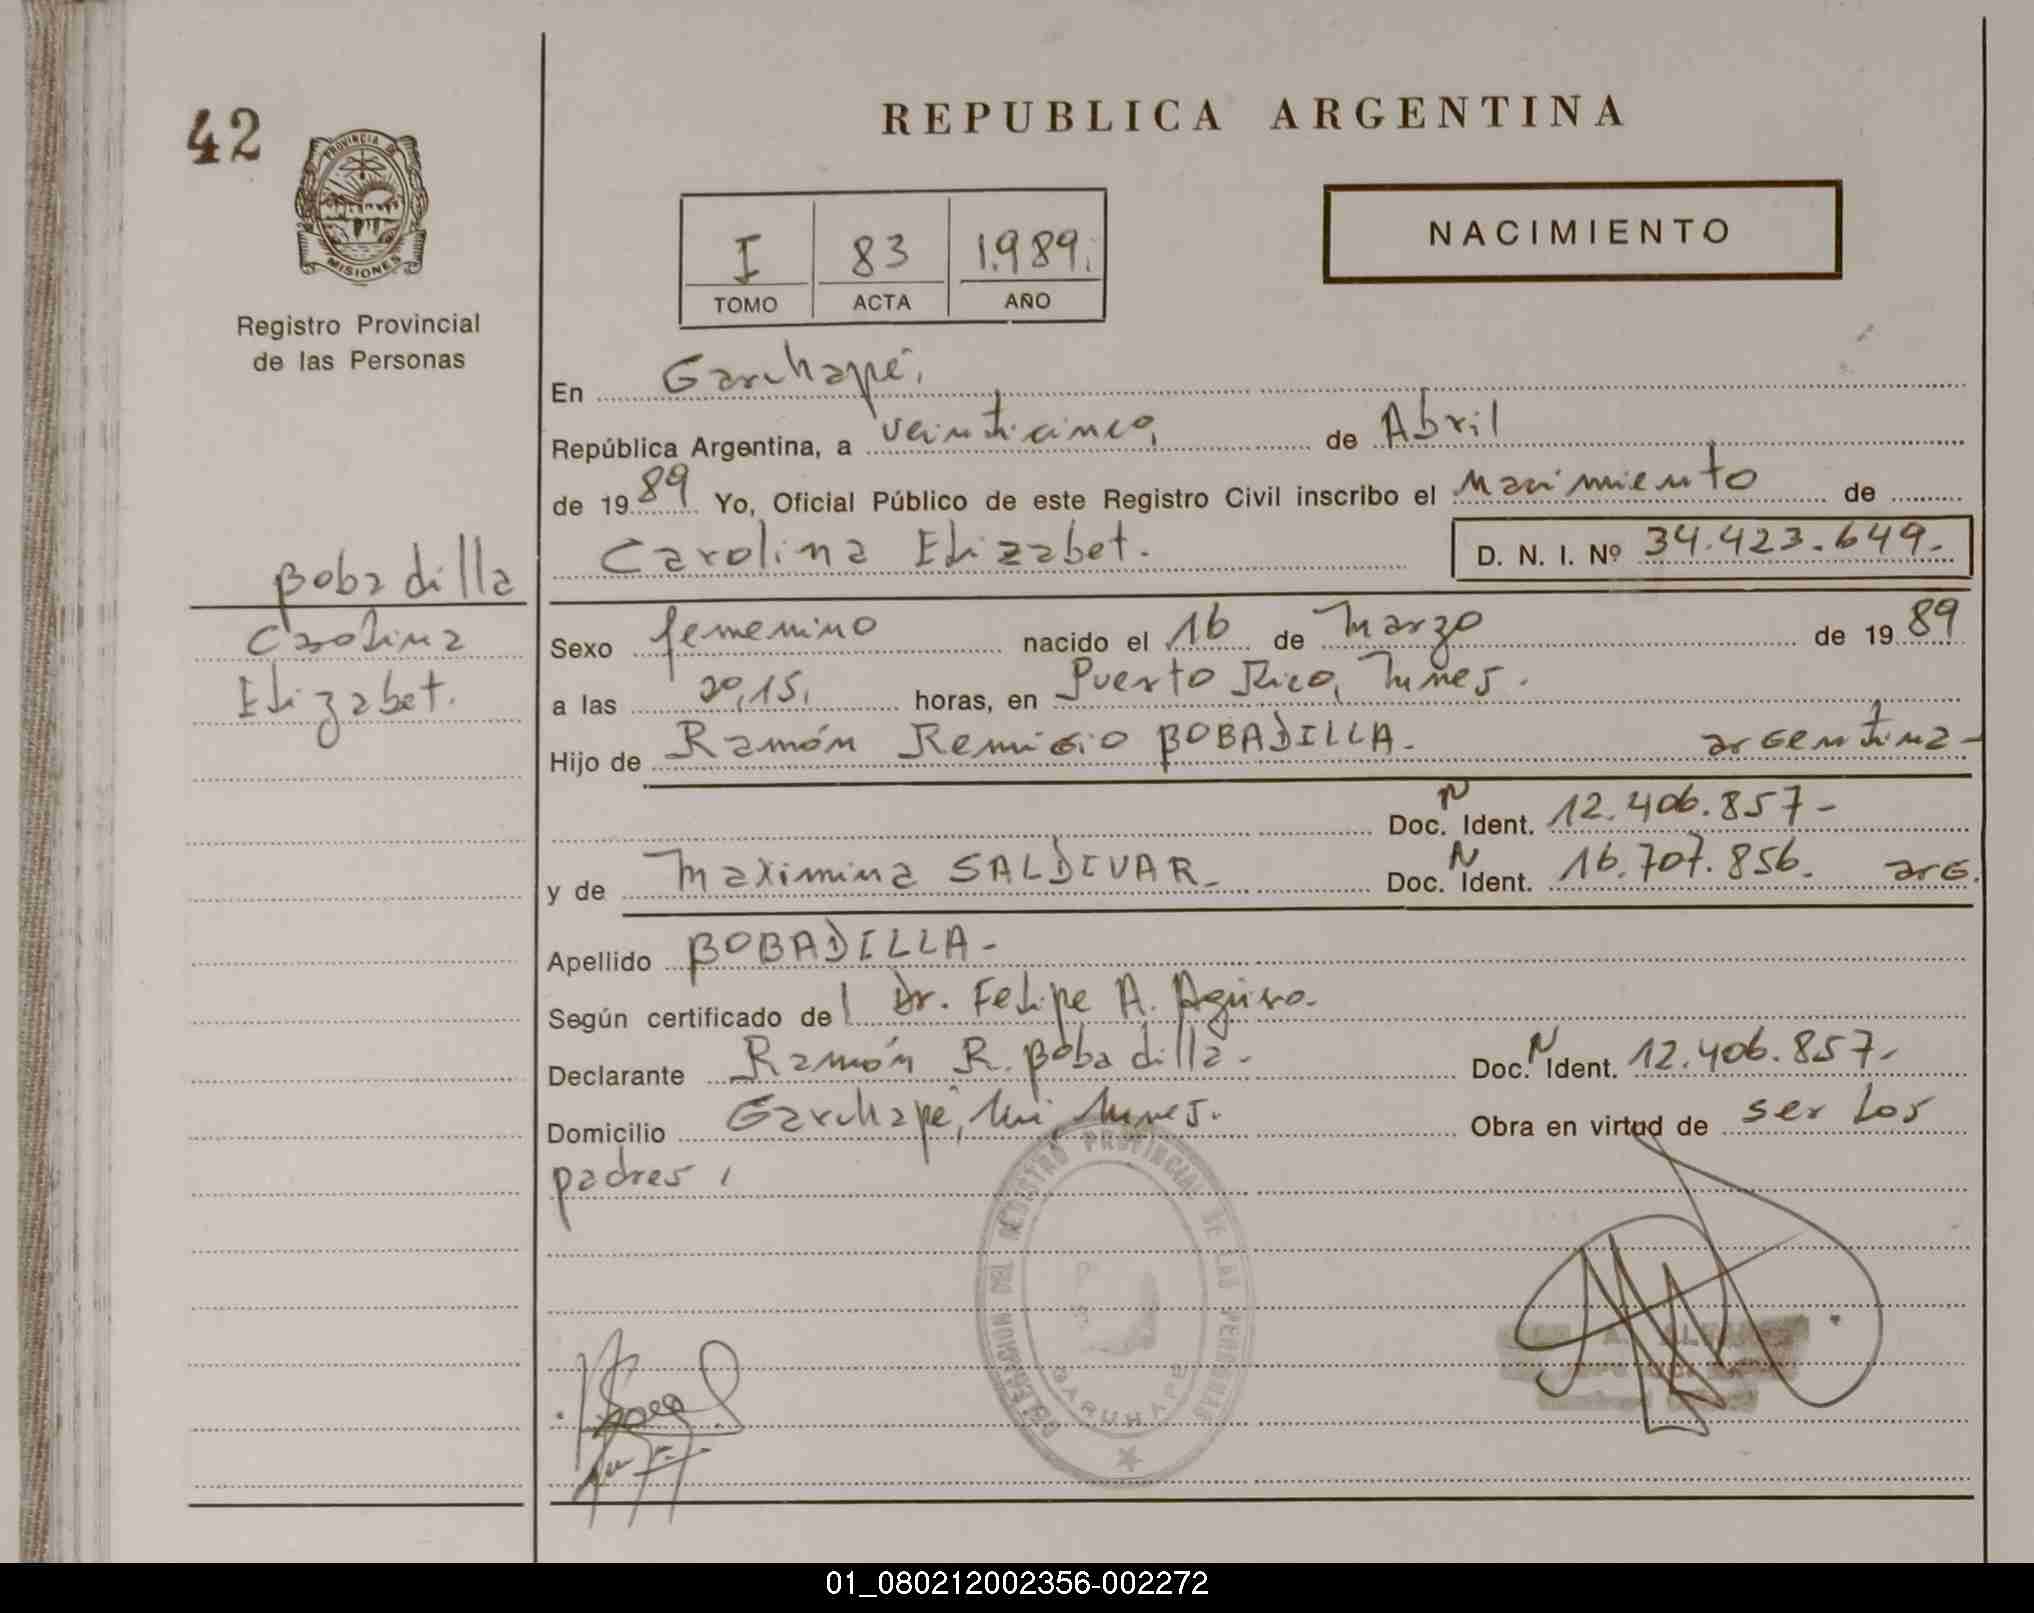 42
REPUBLICA ARGENTINA
PROVINCIA DE
MISIONES
Registro Provincial
de las Personas
I 83 1.989.
TOMO ACTA AÑO
NACIMIENTO
En Garuhapé,
República Argentina, a veinticinco, de Abril
de 19 89 Yo, Oficial Público de este Registro Civil inscribo el Nacimiento de
Carolina Elizabet. D. N. I. Nº 34.423.649.-
Bobadilla
Carolina
Elizabet.
Sexo femenino nacido el 16 de Marzo de 19 89
a las 20,15, horas, en Puerto Rico,
Hijo de Ramón Remigio BOBADILLA.- argentina-
Doc. N Ident. 12.406.857-
y de Maximina SALDIVAR.- Doc. N Ident. 16.707.856. arg.
Apellido BOBADILLA-
Según certificado del Dr. Felipe A.
Declarante Ramón R. Bobadilla.- Doc. N Ident. 12.406.857-
Domicilio Garuhapé, Obra en virtud de ser los
padres.
DELEGACION DEL REGISTRO PROVINCIAL DE LAS PERSONAS
GARUHAPE
01_080212002356-002272